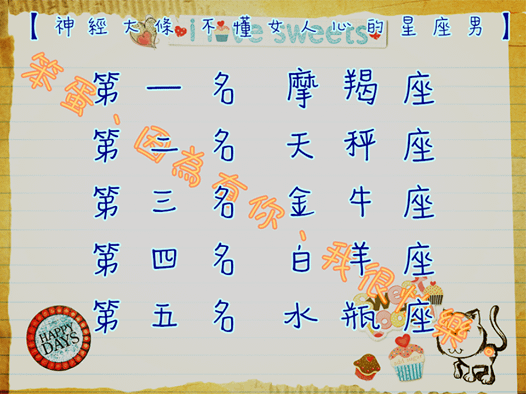 【神經大條不懂女人心的星座男】
i love sweets
第一名 摩羯座
第二名 天秤座
第三名 金牛座
第四名 白羊座
第五名 水瓶座
笨蛋、因為有你、我很快樂
HAPPY
DAYS